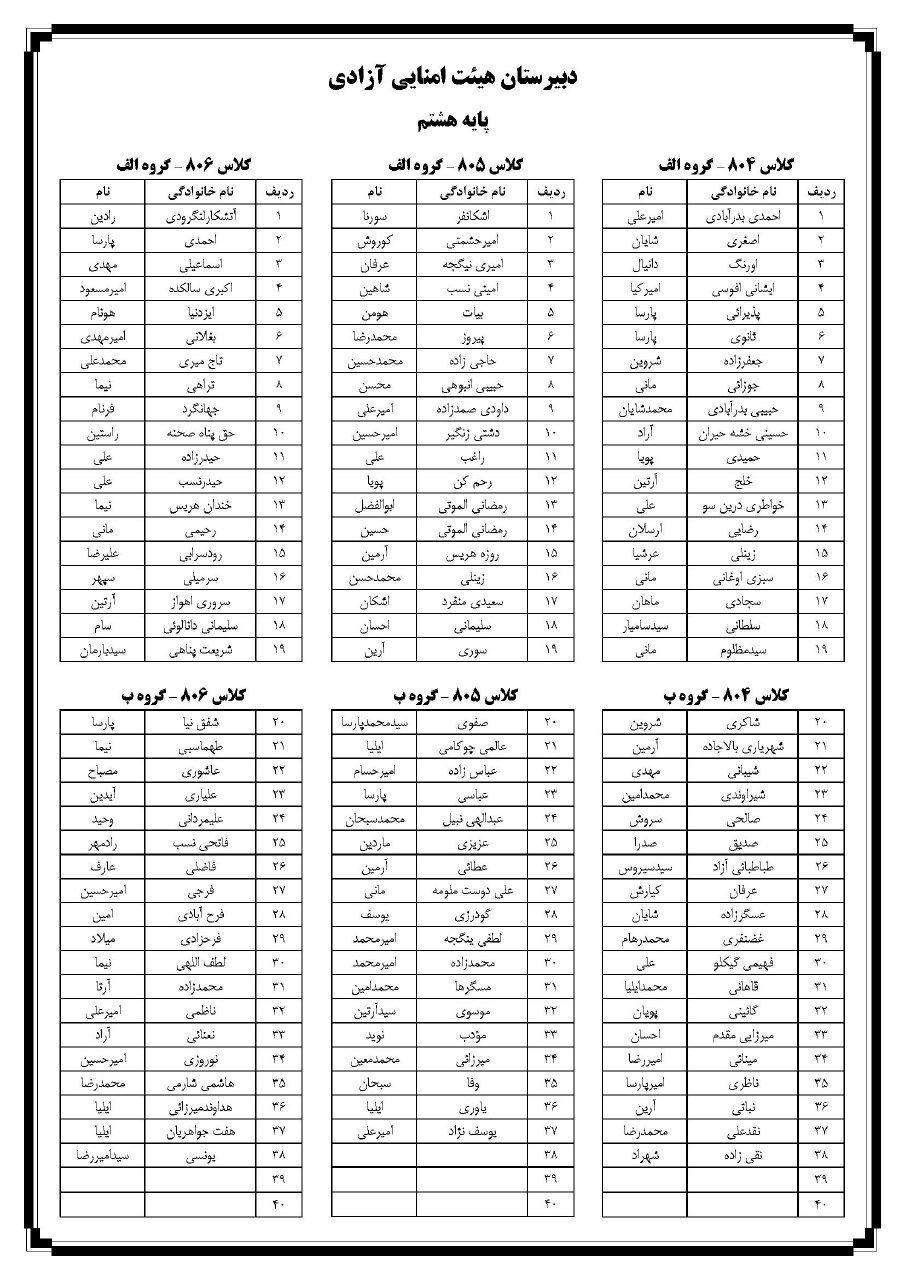 دبیرستان هیئت امنایی آزادی
پایه هشتم
کلاس ۸۰۴ - گروه الف
ردیف نام خانوادگی نام
۱ احمدی بدرآبادی امیرعلی
۲ اصغری شایان
۳ اورنگ دانیال
۴ ایشانی افوسی امیرکیا
۵ پذیرائی پارسا
۶ ثانوی پارسا
۷ جعفرزاده شروین
۸ جوزائی مانی
۹ حبیبی بدرآبادی محمدشایان
۱۰ حسینی خشه حیران آراد
۱۱ حمیدی پویا
۱۲ خلج آرتین
۱۳ خواطری درین سو علی
۱۴ رضایی ارسلان
۱۵ زینلی عرشیا
۱۶ سبزی اوغانی مانی
۱۷ سجادی ماهان
۱۸ سلطانی سیدسامیار
۱۹ سیدمظلوم مانی
کلاس ۸۰۵ - گروه الف
ردیف نام خانوادگی نام
۱ اشکانفر سورنا
۲ امیرحشمتی کوروش
۳ امیری نیگجه عرفان
۴ امینی نسب شاهین
۵ بیات هومن
۶ پیروز محمدرضا
۷ حاجی زاده محمدحسین
۸ حبیبی انبوهی محسن
۹ داودی صمدزاده امیرعلی
۱۰ دشتی زنگیر امیرحسین
۱۱ راغب علی
۱۲ رحم کن پویا
۱۳ رمضانی الموتی ابوالفضل
۱۴ رمضانی الموتی حسین
۱۵ روزه هریس آرمین
۱۶ زینلی محمدحسن
۱۷ سعیدی منفرد اشکان
۱۸ سلیمانی احسان
۱۹ سوری آرین
کلاس ۸۰۶ - گروه الف
ردیف نام خانوادگی نام
۱ آتشکارلنگرودی رادین
۲ احمدی پارسا
۳ اسماعیلی مهدی
۴ اکبری سالکده امیرمسعود
۵ ایزدنیا هونام
۶ بغلانی امیرمهدی
۷ تاج میری محمدعلی
۸ تراهی نیما
۹ جهانگرد فرنام
۱۰ حق پناه صحنه راستین
۱۱ حیدرزاده علی
۱۲ حیدرنسب علی
۱۳ خندان هریس نیما
۱۴ رحیمی مانی
۱۵ رودسرابی علیرضا
۱۶ سرمیلی سپهر
۱۷ سروری اهواز آرتین
۱۸ سلیمانی دانالوئی سام
۱۹ شریعت پناهی سیدبارمان
کلاس ۸۰۴ - گروه ب
۲۰ شاکری شروین
۲۱ شهریاری بالاجاده آرمین
۲۲ شیبانی مهدی
۲۳ شیراوندی محمدامین
۲۴ صالحی سروش
۲۵ صدیق صدرا
۲۶ طباطبائی آزاد سیدسیروس
۲۷ عرفان کیارش
۲۸ عسگرزاده شایان
۲۹ غضنفری محمدرهام
۳۰ فهیمی گیکلو علی
۳۱ قاهانی محمدایلیا
۳۲ گائینی پویان
۳۳ میرزایی مقدم احسان
۳۴ مینائی امیررضا
۳۵ ناظری امیرپارسا
۳۶ نباتی آرین
۳۷ نقدعلی محمدرضا
۳۸ نقی زاده شهراد
۳۹
۴۰
کلاس ۸۰۵ - گروه ب
۲۰ صفوی سیدمحمدپارسا
۲۱ عالمی چوکامی ایلیا
۲۲ عباس زاده امیرحسام
۲۳ عباسی پارسا
۲۴ عبدالهی نبیل محمدسبحان
۲۵ عزیزی ماردین
۲۶ عطائی آرمین
۲۷ علی دوست ملومه مانی
۲۸ گودرزی یوسف
۲۹ لطفی ینگجه امیرمحمد
۳۰ محمدزاده امیرمحمد
۳۱ مسگرها محمدامین
۳۲ موسوی سیدآرتین
۳۳ مؤدب نوید
۳۴ میرزائی محمدمعین
۳۵ وفا سبحان
۳۶ یاوری ایلیا
۳۷ یوسف نژاد امیرعلی
۳۸
۳۹
۴۰
کلاس ۸۰۶ - گروه ب
۲۰ شفق نیا پارسا
۲۱ طهماسبی نیما
۲۲ عاشوری مصباح
۲۳ علیاری آیدین
۲۴ علیمردانی وحید
۲۵ فاتحی نسب رادمهر
۲۶ فاضلی عارف
۲۷ فرجی امیرحسین
۲۸ فرح آبادی امین
۲۹ فرحزادی میلاد
۳۰ لطف اللهی نیما
۳۱ محمدزاده آرتا
۳۲ ناظمی امیرعلی
۳۳ نعنائی آراد
۳۴ نوروزی امیرحسین
۳۵ هاشمی شارمی محمدرضا
۳۶ هداوندمیرزائی ایلیا
۳۷ هفت جواهریان ایلیا
۳۸ یونسی سیدامیررضا
۳۹
۴۰